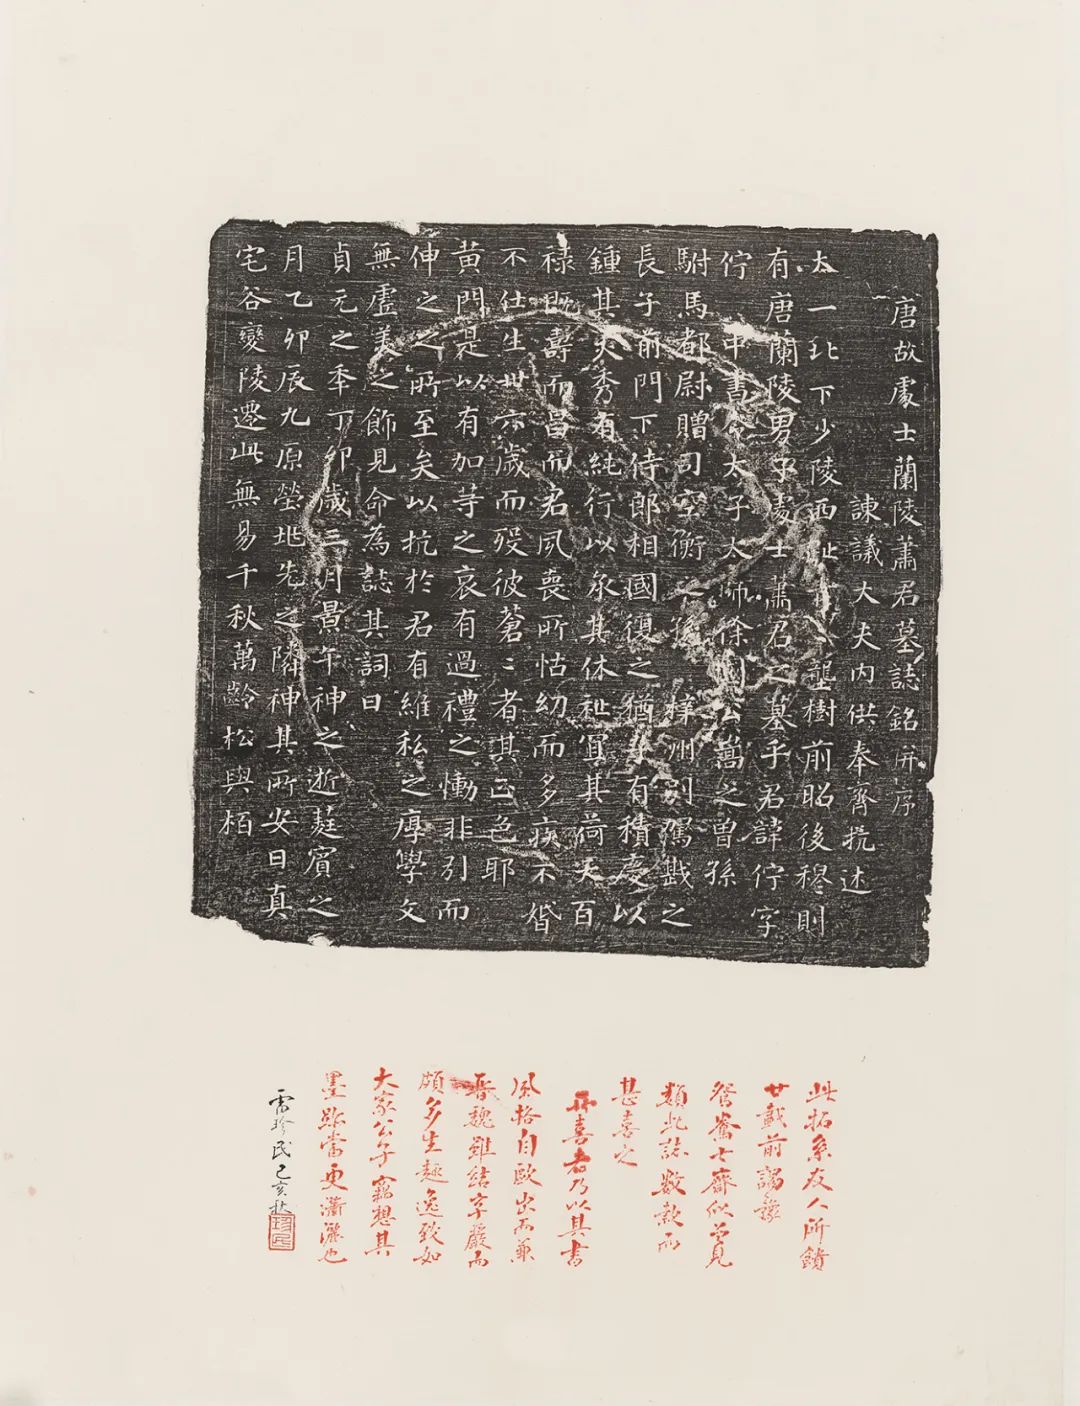 唐故處士蘭陵蕭君墓誌銘并序
諫議大夫内供奉齊抗述
太一北下少陵西壟樹前昭後穆則
有唐蘭陵男子處士蕭君之墓乎君諱佇字
佇中書令太子太師徐國公嵩之曾孫
駙馬都尉贈司空衡之孫梓州别駕戡之
長子前門下侍郎相國復之猶子有積慶以
鍾其美秀有純行以承其休祉冝其荷天百
祿既壽而昌而君夙喪所怙幼而多疾不婚
不仕生廿六歲而歿彼蒼二者其正色耶
黄門是以有加等之哀有過禮之慟非引而
伸之之所至矣以抗於君有維私之厚學文
無虛美之飾見命為誌其詞曰
貞元之年丁卯歲三月景午神之逝蕤賓之
月乙卯辰九原塋地先之隣神其所安日真
宅谷變陵遷此無易千秋萬齡松與栢
此拓系友人所饋
廿載前謁豫
鴛鴦七齋似曾見
類此誌數款而
甚喜之
喜者乃以其書
風格自歐出而兼
晋魏雖結字嚴而
頗多生趣逸致如
大家公子竊想其
墨跡當更瀟灑也
雷珍民己亥秋